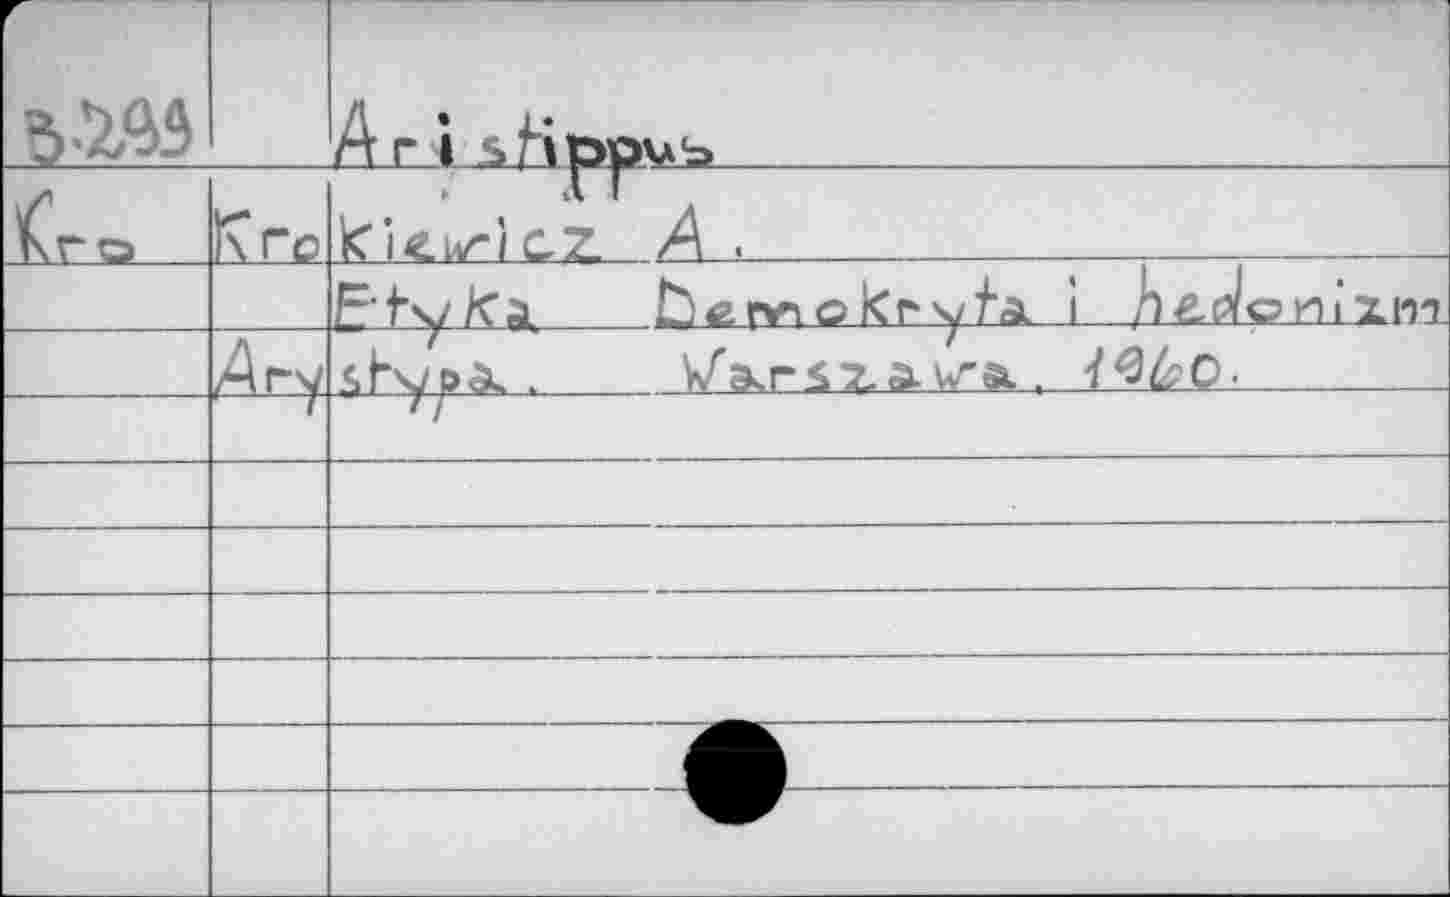 B.299 Aristippus
Kro Krokiewicz A.
Etyka Demokryta i hedonizm
Arystypa. Warszawa. 1960.